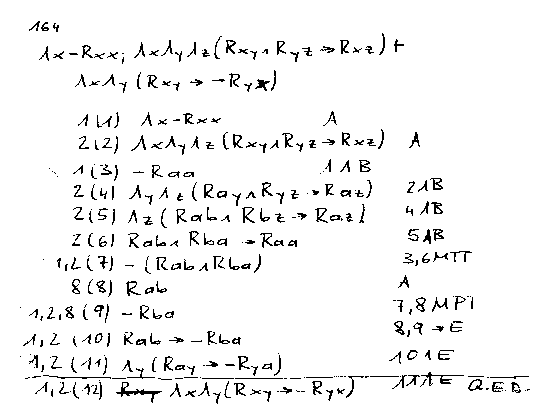 164
Λx-Rxx; ΛxΛyΛz(Rxy∧Ryz→Rxz)⊢
ΛxΛy(Rxy→-Ryx)
1(1) Λx-Rxx A
2(2) ΛxΛyΛz(Rxy∧Ryz→Rxz) A
1(3) -Raa 1ΛB
2(4) ΛyΛz(Ray∧Ryz→Raz) 2ΛB
2(5) Λz(Rab∧Rbz→Raz) 4ΛB
2(6) Rab∧Rba→Raa 5ΛB
1,2(7) -(Rab∧Rba) 3,6MTT
8(8) Rab A
1,2,8(9) -Rba 7,8MPT
1,2(10) Rab→-Rba 8,9→E
1,2(11) Λy(Ray→-Rya) 10ΛE
1,2(12) ΛxΛy(Rxy→-Ryx) 11ΛE Q.E.D.